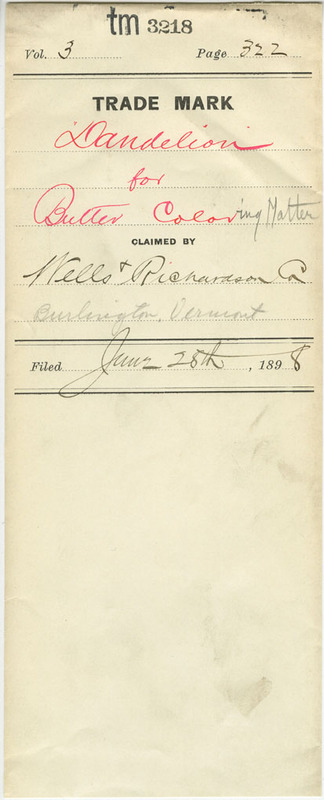 tm 3218
Vol. 3 Page 322
TRADE MARK
Dandelion
for
Butter Coloring Matter
CLAIMED BY
Wells & Richardson Co
Burlington, Vermont
Filed June 28th, 1898